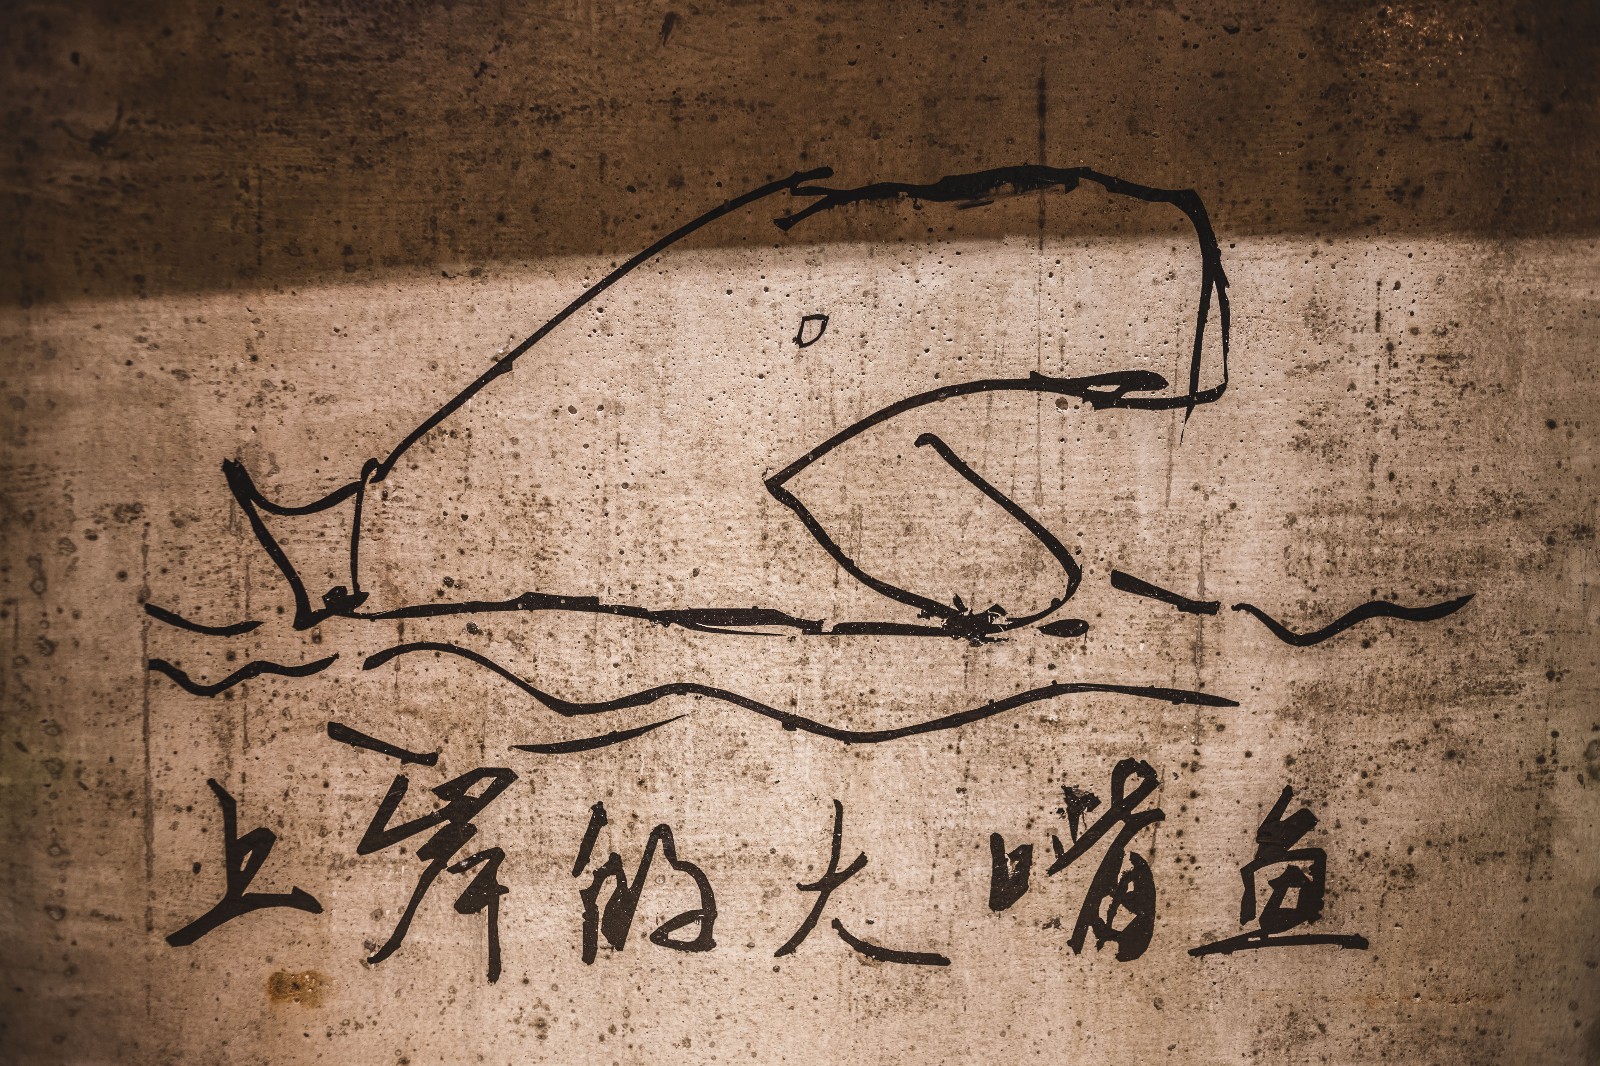 上岸的大嘴鱼